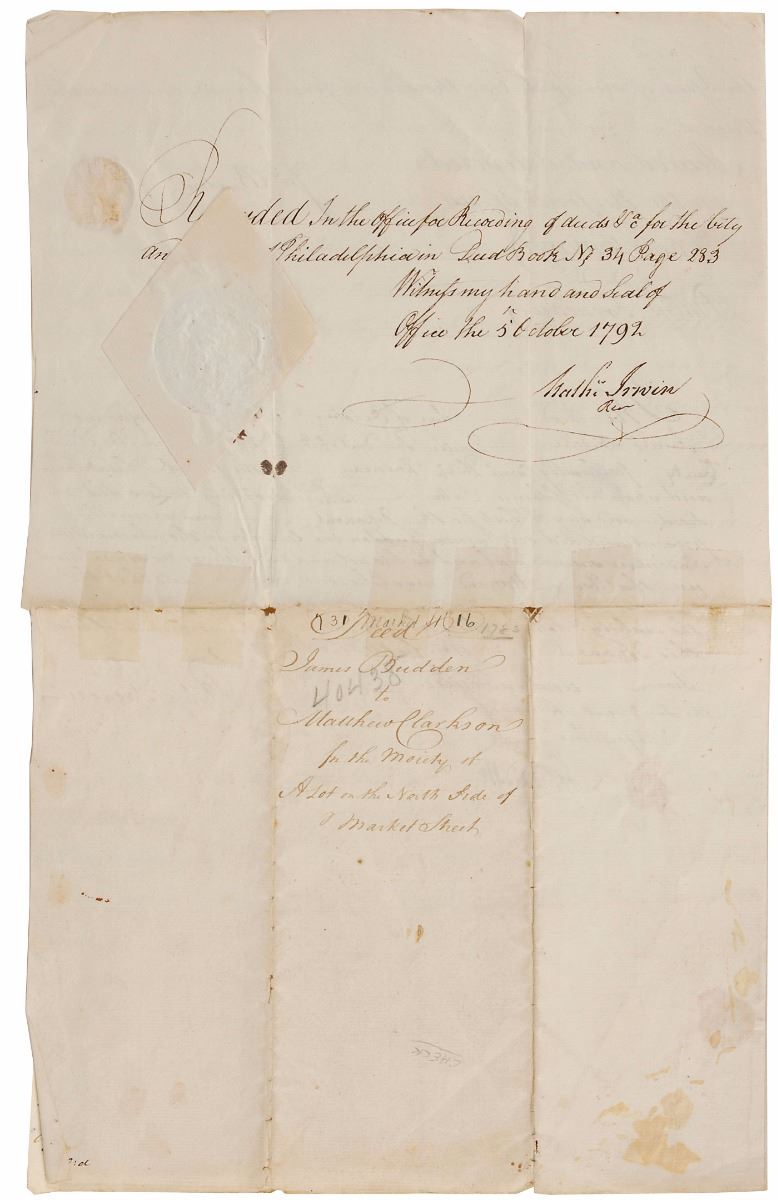 Recorded In the Office for Recording of deeds &ca for the City
an Philadelphia in Deed Book No 34 Page 283
Witness my hand and Seal of
Office the 5th October 1792
Nathl Irwin
Rec
31 March 16
Deed
James Budden
40435
to
Matthew Clarkson
for the Moiety of
A Lot on the North Side of
Market Street
CHECK